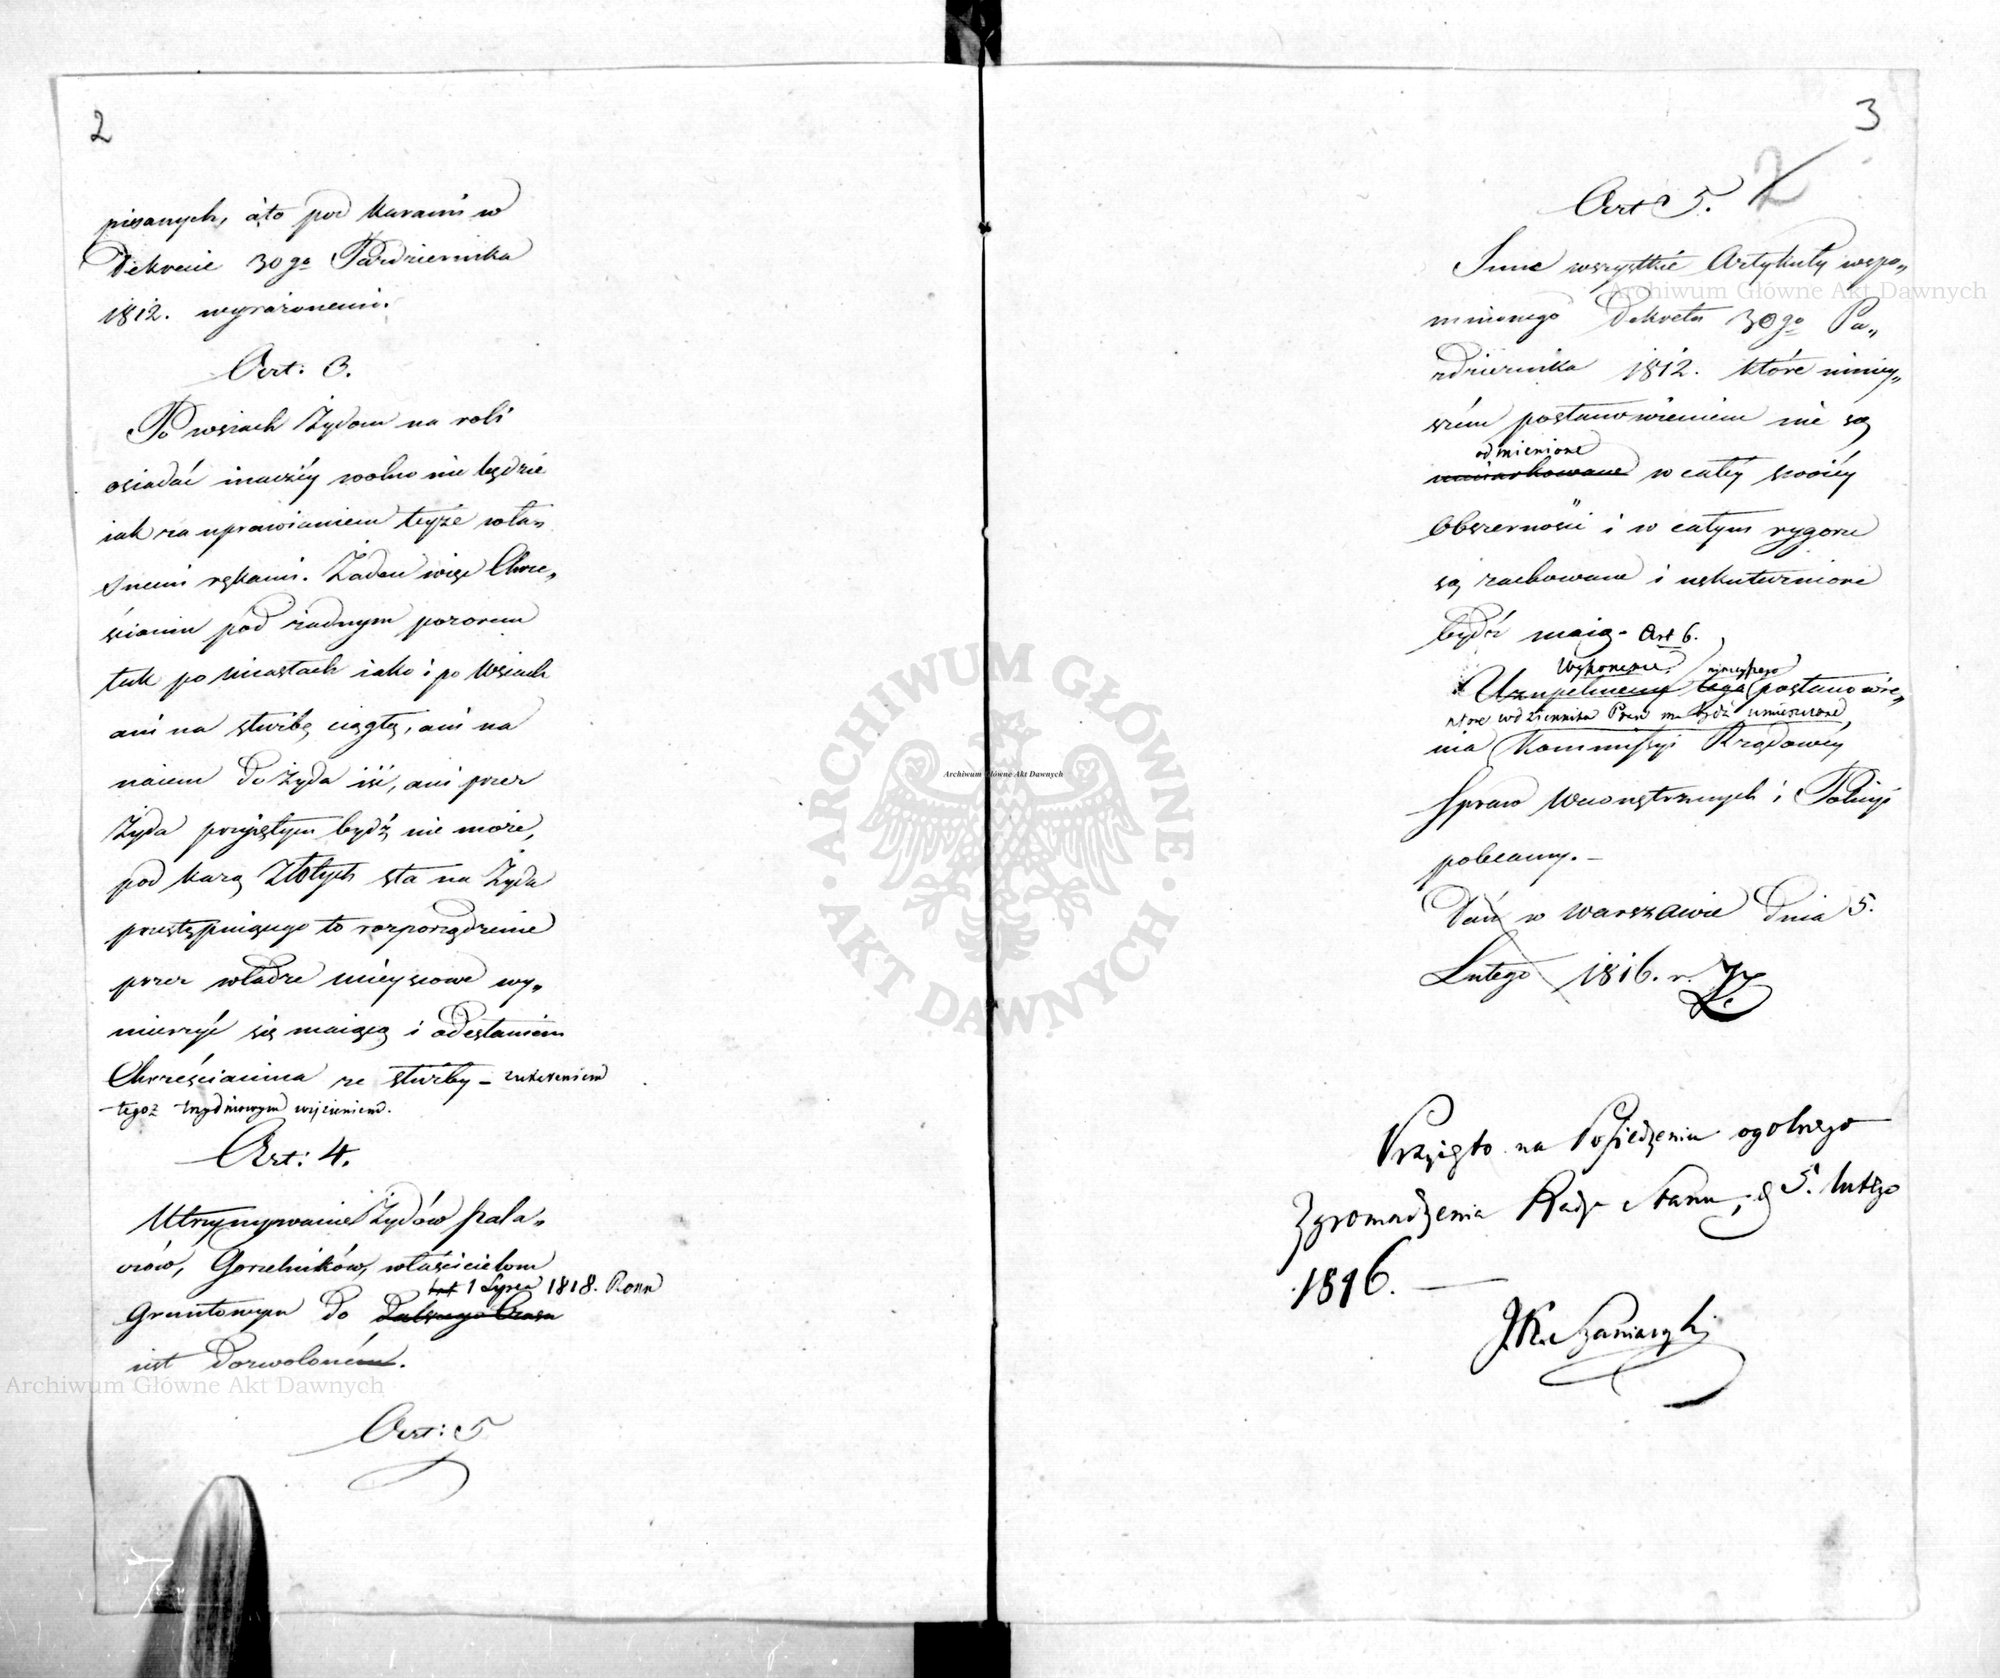 2
pisanych, a to pod karami w
Dekrecie 30go Pazdziernika
1812. wyrażonemi.
Art: 3.
Po wsiach Żydom na roli
osiadać inaczéy wolno nie będzie
iak za uprawianiem teyże wła„
snemi rękami. Żaden więc Chrze„
ścianin pod żadnym pozorem
tak po Miastach iako i po Wsiach
ani na służbę ciągłą, ani na
naiem do Żyda iść, ani przez
Żyda przyiętym bydź nie może,
pod karą Złotych sta na Żyda
przestępuiącego to rozporządzenie
przez władze mieyscowe wy„
mierzyć się maiącą i odesłaniem
Chrześcianina ze służby –
tegoż tygodniowym więzieniem.
Art: 4.
Utrzymywanie Żydów szala„
rzów, Gorzelników, właścicielom
1 Lipca 1818. Roku
Gruntowym do dalszego Czasu
iest dozwoloném.
Art: 5
3
2
Art 5.
Inne wszystkie Artykuły wspo„
mnionego Dekretu 30go Pa„
zdziernika 1812. które niniey„
szém postanowieniem nie są
odmienione
umiarkowane w całéy swoiéy
Obszerności i w całym rygorze
są zachowane i uskutecznione
bydź maią. Art 6.
Wykonanie ninieyszego
Uzupełnienie tego postanowie„
które w dzienniku Praw ma bydź umieszczone,
nia Kommissyi Rządowéy
Spraw Wewnętrznych i Policyi
polecamy. –
Dan w Warszawie Dnia 5.
Lutego 1816. r.
Przyięto na Posiedzeniu ogolnego
Zgromadzenia Rady Stanu, d 5. lutego
1816. —
J.K. Szaniawski
Archiwum Główne Akt Dawnych
Archiwum Główne Akt Dawnych
Archiwum Główne Akt Dawnych
ARCHIWUM GŁÓWNE
AKT DAWNYCH